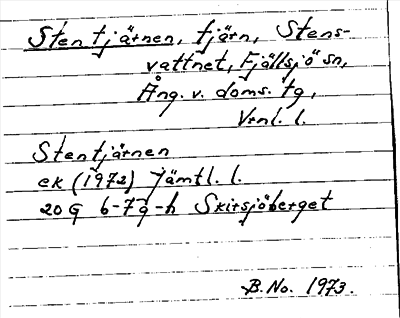 Stentjärnen, tjärn, Stens-
vattnet, Fjällsjö sn,
Ång. v. doms. tg,
Vrnl. l.
Stentjärnen
ek (1972) Jämtl. l.
20G 6-7g-h Skirsjöberget
B. No. 1973.